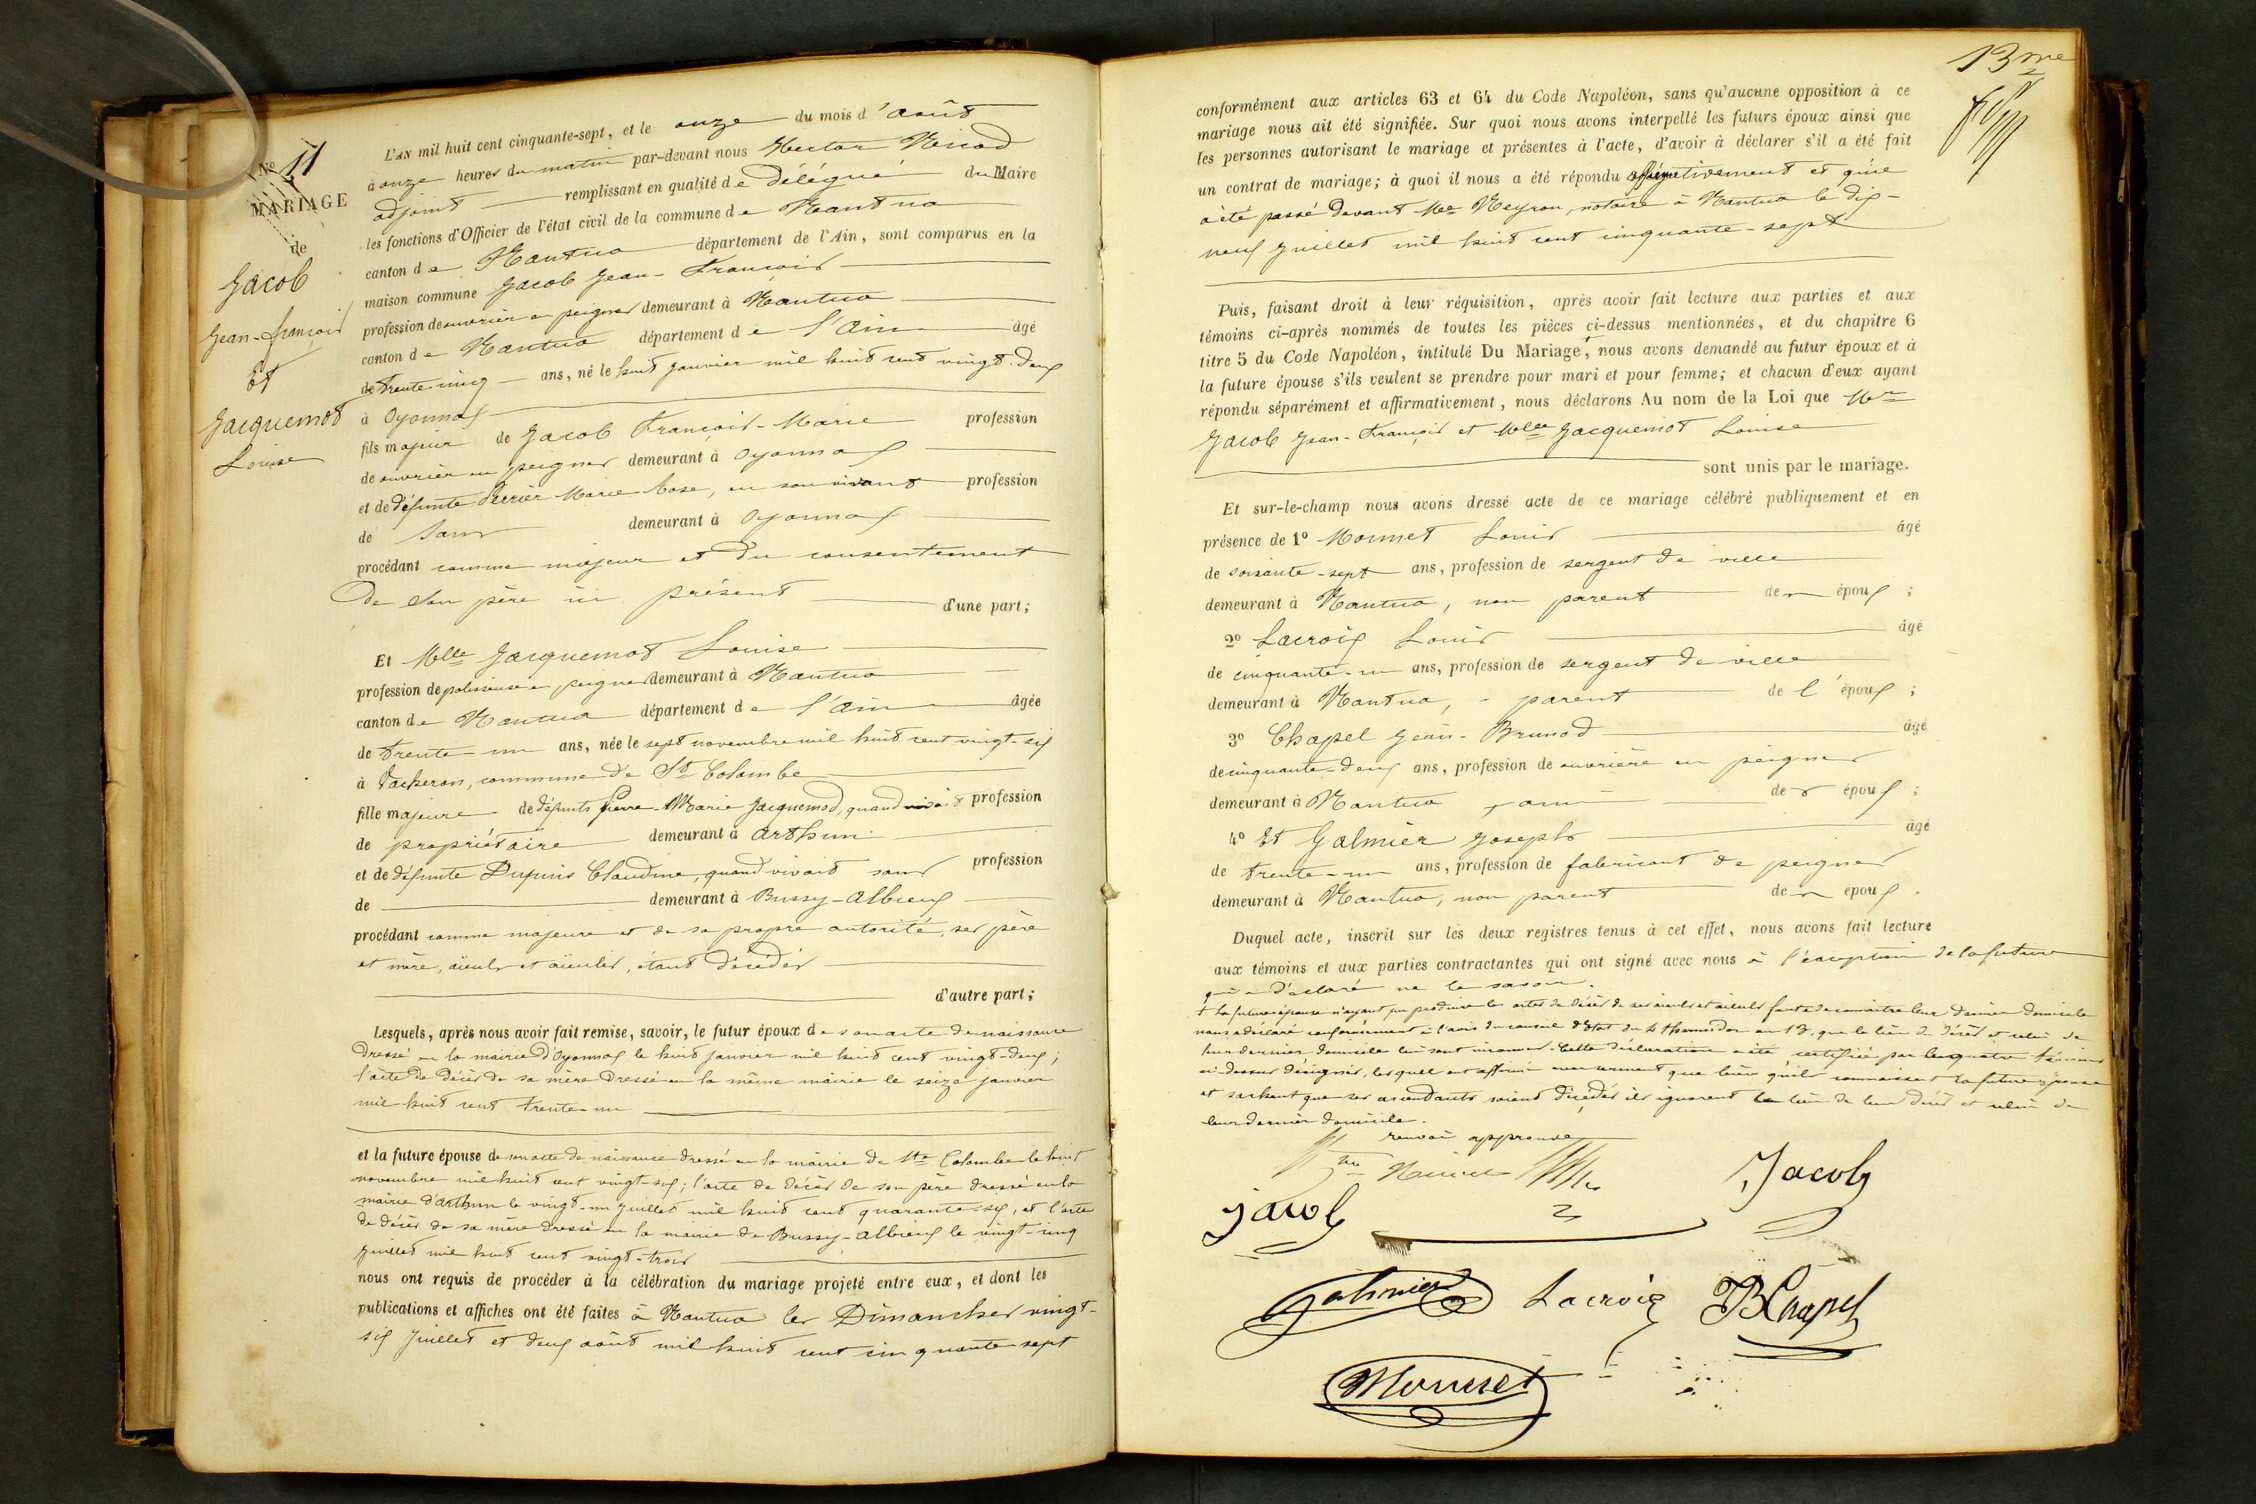 N° 11
MARIAGE
de
Jacob
Jean-françois
Et
Jacquemot
Louise
L'AN mil huit cent cinquante-sept, et le onze du mois d'août
à onze heures du matin par-devant nous Hector
adjoint remplissant en qualité de Délégué du Maire
les fonctions d'Officier de l'état civil de la commune de Nantua
canton de Nantua département de l'Ain, sont comparus en la
maison commune Jacob Jean-François
profession de ouvrier en peignes demeurant à Nantua
canton de Nantua département de l'Ain âgé
de trente cinq ans, né le huit janvier mil huit cent vingt-deux
à Oyonnax
fils majeur de Jacob François-Marie profession
de ouvrier en peignes demeurant à Oyonnax
et de défunte Perrier Marie-Rose, en son vivant profession
de sans demeurant à Oyonnax
procédant comme majeur et du consentement
de son père ici présent d'une part;
Et Melle Jacquemot Louise
profession de polisseuse en peignes demeurant à Nantua
canton de Nantua département de l'Ain âgée
de trente-un ans, née le sept novembre mil huit cent vingt-six
à Vacheron, commune de Ste Colombe
fille majeure de défunts Pierre-Marie Jacquemod, quand vivait profession
de propriétaire demeurant à Arthun
et de défunte Dupuis Claudine, quand vivait sans profession
de demeurant à Bussy-Albieux
procédant comme majeure et de sa propre autorité, ses père
et mère, aïeuls et aïeules, étant décédés
d'autre part;
Lesquels, après nous avoir fait remise, savoir, le futur époux de son acte de naissance
dressé en la mairie d'Oyonnax le huit janvier mil huit cent vingt-deux;
l'acte de décès de sa mère dressé en la même mairie le seize janvier
mil huit cent trente-un
et la future épouse de son acte de naissance dressé en la mairie de Ste Colombe le huit
novembre mil huit cent vingt-six; l'acte de décès de son père dressé en la
mairie d'Arthun le vingt-un juillet mil huit cent quarante-six, et l'acte
de décès de sa mère dressé en la mairie de Bussy-Albieux le vingt-cinq
juillet mil huit cent vingt-trois
nous ont requis de procéder à la célébration du mariage projeté entre eux, et dont les
publications et affiches ont été faites à Nantua les Dimanches vingt-
six juillet et deux août mil huit cent cinquante sept
13me
conformément aux articles 63 et 64 du Code Napoléon, sans qu'aucune opposition à ce
mariage nous ait été signifiée. Sur quoi nous avons interpellé les futurs époux ainsi que
les personnes autorisant le mariage et présentes à l'acte, d'avoir à déclarer s'il a été fait
un contrat de mariage; à quoi il nous a été répondu affirmativement et qu'il
a été passé devant Me Neyron, notaire à Nantua le dix-
neuf juillet mil huit cent cinquante-sept
Puis, faisant droit à leur réquisition, après avoir fait lecture aux parties et aux
témoins ci-après nommés de toutes les pièces ci-dessus mentionnées, et du chapitre 6
titre 5 du Code Napoléon, intitulé Du Mariage, nous avons demandé au futur époux et à
la future épouse s'ils veulent se prendre pour mari et pour femme; et chacun d'eux ayant
répondu séparément et affirmativement, nous déclarons Au nom de la Loi que Mr
Jacob Jean-François et Melle Jacquemot Louise
sont unis par le mariage.
Et sur-le-champ nous avons dressé acte de ce mariage célébré publiquement et en
présence de 1° Monnet Louis âgé
de soixante-sept ans, profession de sergent de ville
demeurant à Nantua, non parent des époux;
2° Lacroix Louis âgé
de cinquante-un ans, profession de sergent de ville
demeurant à Nantua, parent de l'époux;
3° Chapel Jean-Brunod âgé
de cinquante-deux ans, profession de ouvrière en peignes
demeurant à Nantua ami des époux;
4° Et Galmier Joseph âgé
de trente-un ans, profession de fabricant de peignes
demeurant à Nantua, non parent des époux.
Duquel acte, inscrit sur les deux registres tenus à cet effet, nous avons fait lecture
aux témoins et aux parties contractantes qui ont signé avec nous à l'exception de la future
qui a déclaré ne le savoir.
+ La future épouse n'ayant pu produire les actes de décès de ses aïeuls et aïeules faute de connaître leur dernier domicile
nous a déclaré conformément à l'avis du conseil d'Etat du 4 thermidor an 13, que le lieu du décès et celui de
leur dernier domicile lui sont inconnus. Cette déclaration a été certifiée par les quatre témoins
ci-dessus désignés, lesquels ont affirmé avec serment que bien qu'ils connaissent la future épouse
et sachant que ses ascendants soient décédés ils ignorent le lieu de leur décès et celui de
leur dernier domicile.
renvoi approuvé
Jacob
Jacob
Galmier
Lacroix
JBChapel
Monnet